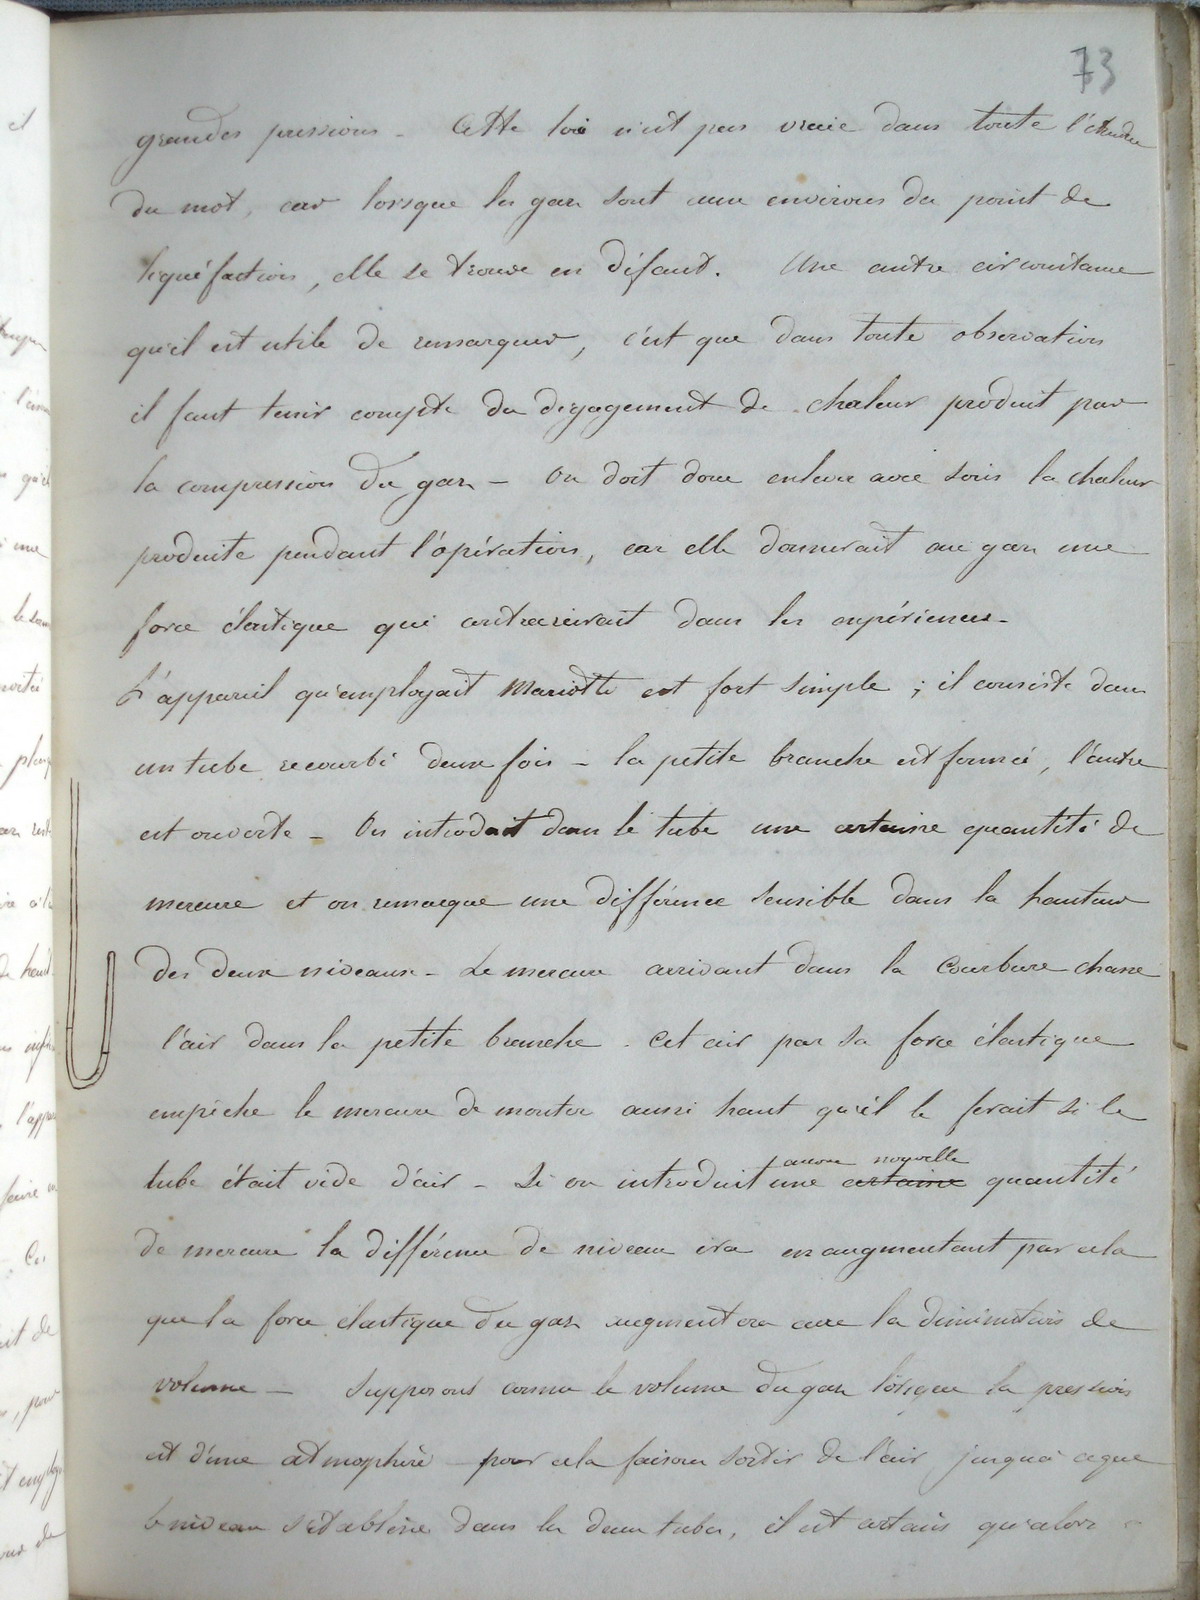 73
grandes pressions - Cette loi n'est pas vraie dans toute l'étendue
du mot, car lorsque les gaz sont aux environs du point de
liquéfaction, elle se trouve en défaut. Une autre circonstance
qu'il est utile de remarquer, c'est que dans toute observation
il faut tenir compte du dégagement de chaleur produit par
la compression du gaz - On doit donc enlever avec soin la chaleur
produite pendant l'opération, car elle donnerait au gaz une
force élastique qui dans les expériences -
L'appareil qu'employait Mariotte est fort simple ; il consiste dans
un tube recourbé deux fois - la petite branche est fermée, l'autre
est ouverte - On introduit dans le tube une certaine quantité de
mercure et on remarque une différence sensible dans la hauteur
des deux niveaux - Le mercure arrivant dans la courbure chasse
l'air dans la petite branche - Cet air par sa force élastique
empêche le mercure de monter aussi haut qu'il le ferait si le
tube était vide d'air - Si on introduit une certaine quantité
nouvelle
de mercure la différence de niveau ira en augmentant par cela
que la force élastique du gaz augmentera avec la diminution de
volume - Supposons connu le volume du gaz lorsque la pression
est d'une atmosphère - pour cela faisons sortir de l'air jusqu'à ce que
le niveau s'établisse dans les deux tubes, il est certain qu'alors